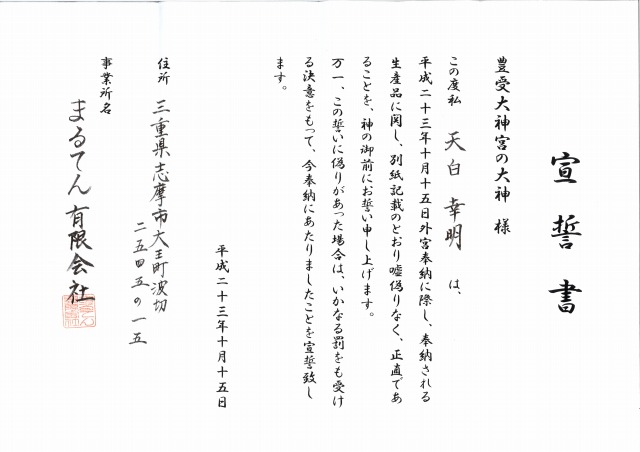 宣誓書
豊受大神宮の大神 様
この度私 天白 幸明 は、
平成二十三年十月十五日外宮奉納に際し、奉納される
生産品に関し、別紙記載のとおり嘘偽りなく、正直であ
ることを、神の御前にお誓い申し上げます。
万一、この誓いに偽りがあった場合は、いかなる罰をも受け
る決意をもって、今奉納にあたりましたことを宣誓致し
ます。
平成二十三年十月十五日
住所 三重県志摩市大王町波切
二五四五の一五
事業所名
まるてん有限会社